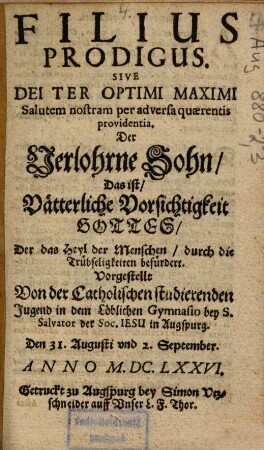 FILIUS
PRODIGUS.
SIVE
DEI TER OPTIMI MAXIMI
Salutem nostram per adversa quærentis
providentia.
Der
Verlohrne Sohn/
Das ist/
Vätterliche Vorsichtigkeit
GOTTES/
Der das Heyl der Menschen/ durch die
Trübseligkeiten befürdert.
Vorgestellt
Von der Catholischen studierenden
Jugend in dem Löblichen Gymnasio bey S.
Salvator der Soc. IESU in Augspurg.
Den 31. Augusti vnd 2. September.
ANNO M.DC.LXXVI.
Getruckt zu Augspurg bey Simon Utz-
schneider auff Vnser L. F. Thor.